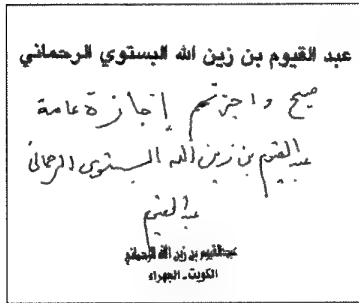 عبد القيوم بن زين الله البستوي الرحماني
صحيح واجزتهم إجازة عامة
عبد القيوم بن زين الله البستوي الرحماني
عبد القيوم
عبدالقيوم بن زين الله الرحماني
الكويت - الجهراء